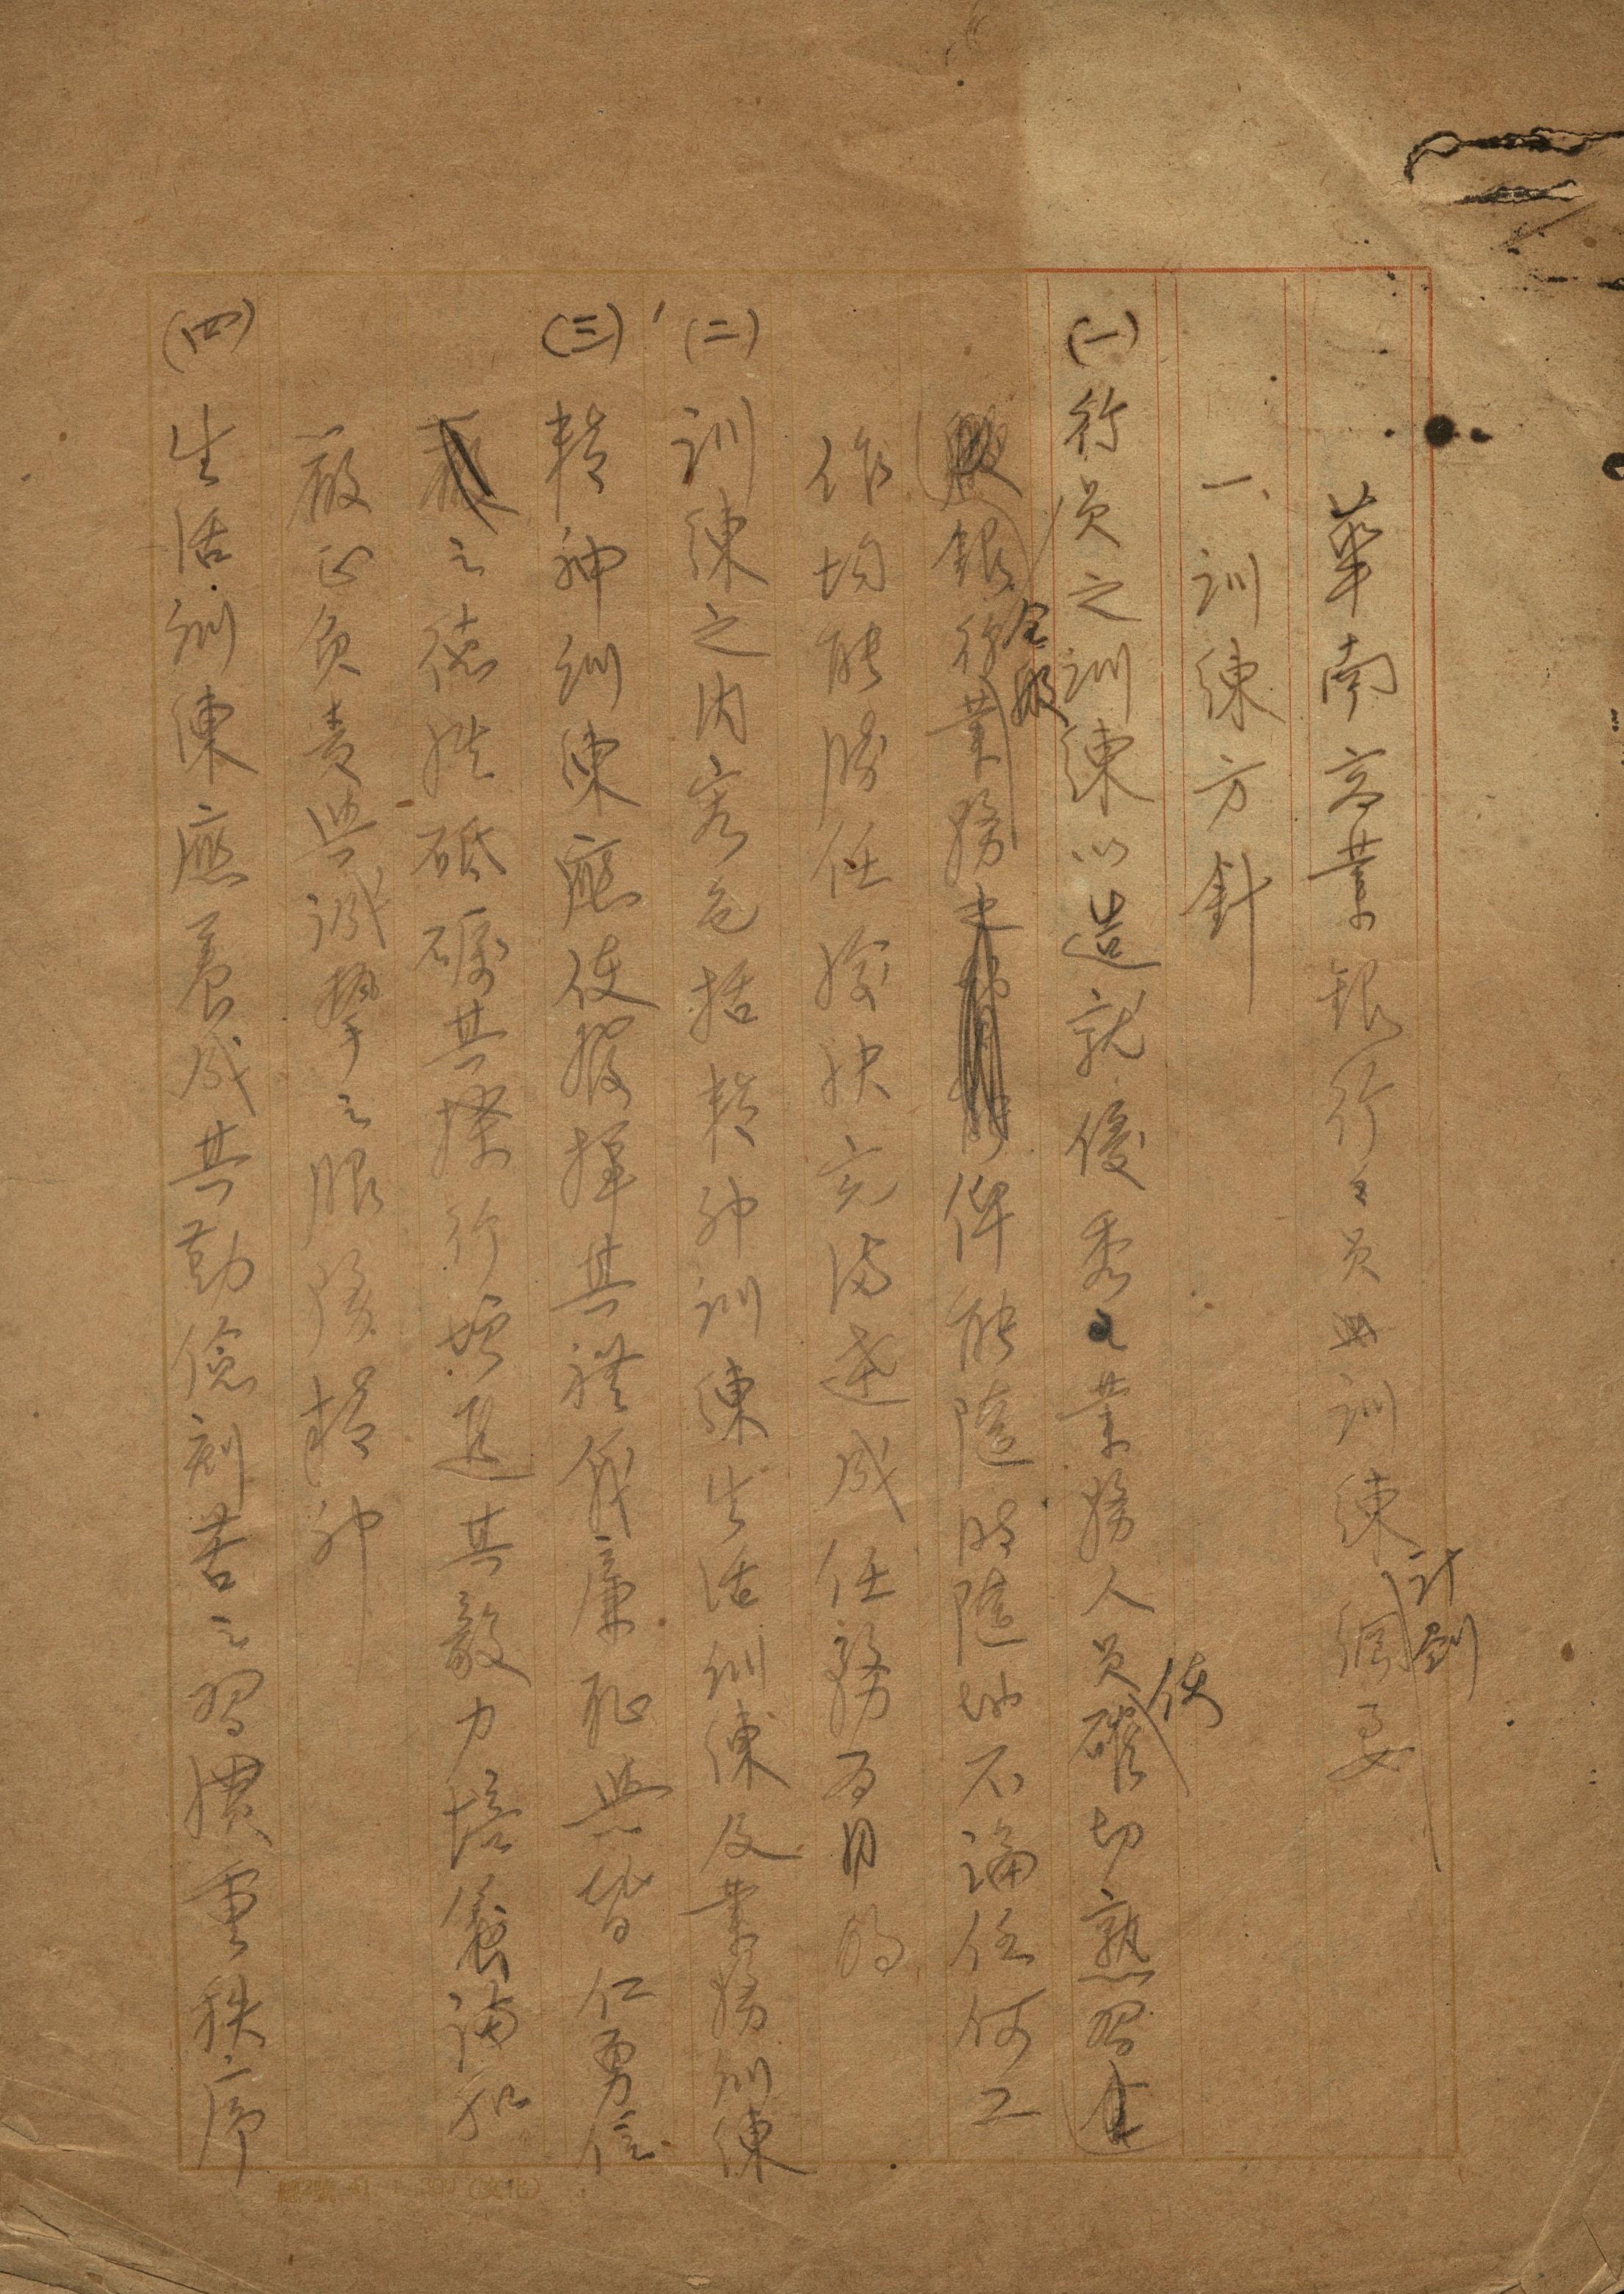 華南商業銀行之員工訓練綱要
計劃
一、訓練方針
(一)行員之訓練以造就優秀之業務人員確切熟習
使
銀行業務 俾能隨時隨地不論任何工
全般
作均能勝任愉快充滿達成任務為目的
(二)訓練之內容包括精神訓練生活訓練及業務訓練
(三)精神訓練應使發揮其禮義廉恥與智仁勇信
嚴之德性砥礪其操行增進其毅力培養謙和
嚴正負責與誠摯之服務精神
(四)生活訓練應養成其勤儉刻苦之習慣重秩序